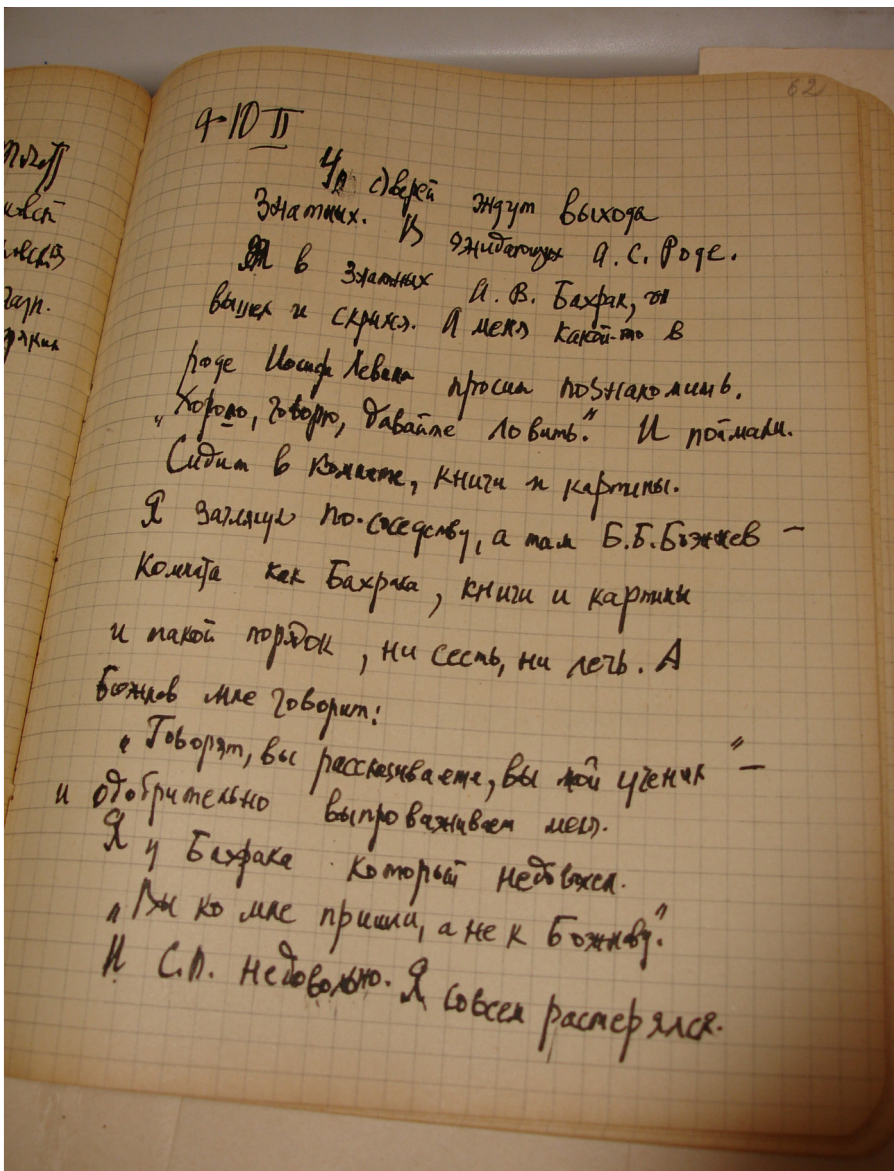 62
9-10 II
У дверей ждут выхода
знатных. В ожидающих А.С. Роде.
в знатных А.В. Бахрах, он
вышел и скрылся. А меня какой-то в
роде Иосифа Левина просит познакомить.
„Хорошо, говорю, давайте ловить." И поймали.
Сидит в комнате, книги и картины.
Я заглянул по-соседству, а там Б.Б. Божнев —
комната как Бахраха, книги и картины
и такой порядок, ни сесть, ни лечь. А
Божнев мне говорит:
„Говорят, вы рассказываете, вы мой ученик" —
и одобрительно выпроваживает меня.
Я у Бахраха который недоволен.
„Вы ко мне пришли, а не к Божневу."
И С.П. недовольно. Я совсем растерялся.